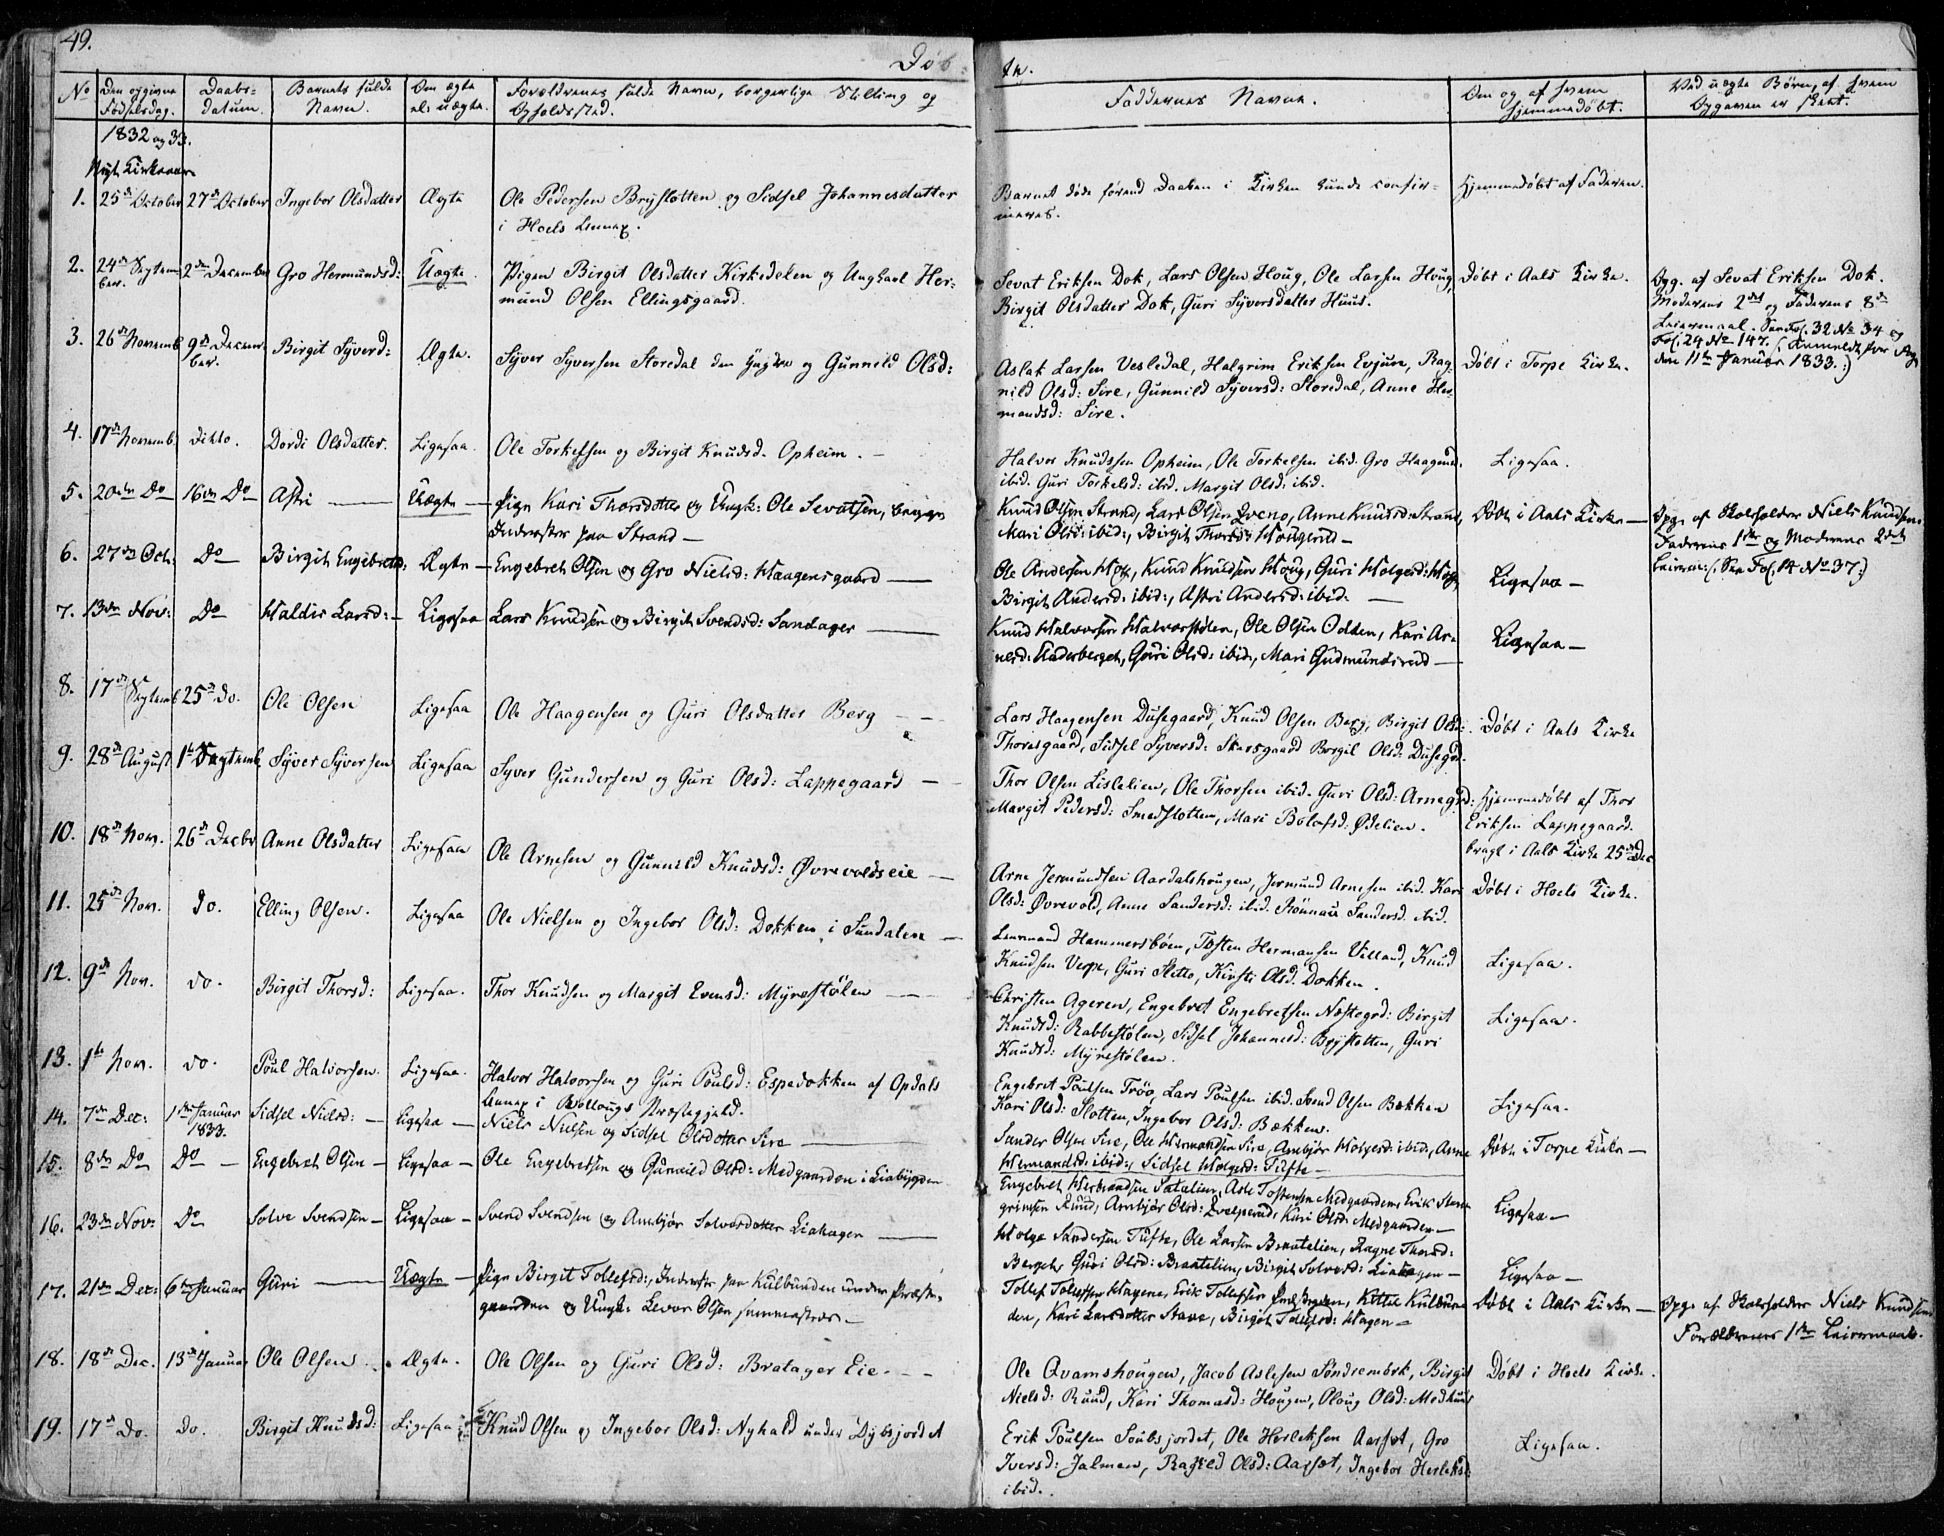 49.
Døb-
te.
No
Den opgivne Fødselsdag.
Daabs-datum.
Barnets fulde Navn.
Om ægte el. uægte.
Forældrenes fulde Navn, borgerlige Stilling og Opholdssted.
Faddernes Navne.
Om og af hvem hjemmedøbt.
Ved uægte Børn, af hvem Opgaven er skeet.
1832 og 33.
Nyt Kirkeaar
1. 25de October 27de October Ingebor Olsdatter Ægte Ole Pedersen Brystøtten og Sidsel Johannesdatter
i Hoels Annex.
Barnet døde førend Daaben i Kirken kunde confir-
meres.
Hjemmedøbt af Faderen.
2. 24de Septem
ber. 2den December Gro Hermundsd: Uægte. Pigen Birgit Olsdatter Kirkedelen og Ungkarl Her-
mund Olsen Ellingsgaard.
Sevat Eriksen Dok, Lars Olsen Houg, Ole Larsen Houg,
Birgit Olsdatter Dok, Guri Syversdatter Huus.
Døbt i Aals Kirke.
Opg. af Sevat Eriksen Dok.
Moderens 2det og Faderens 8de
Leiermaal. See Fol. 32 No 34 og
Fol. 24 No 147.
den 11te Januar 1833.:)
3. 26de Novemb 9de Decem-
ber. Birgit Syverd: Ægte. Syver Syversen Storedal den Yngre og Gunnild Olsd:
Aslak Larsen Vesledal, Halgrim Eriksen Evjuen, Rag-
nild Olsd: Sire, Gunnild Syversd: Storedal, Anne Her-
mandsd: Sire.
Døbt i Torpe Kirke.
4. 17de Novemb. ditto. Dordi Olsdatter. Ligesaa. Ole Torkelsen og Birgit Knudsd. Opheim.
Halvor Knudssen Opheim, Ole Torkelsen ibid. Gro Haagensd.
ibid. Guri Torkelsd: ibid. Margit Olsd: ibid.
Ligesaa.
5. 20de Do 16de Do Astri Uægte Pige Kari Thorsdotter og Ungk: Ole Sevatsen, begge
Inderster paa Strand
Knud Olsen Strand, Lars Olsen Qveno, Anne Knudsd: Strand,
Mari Olsd: ibid:, Birgit Thorsd: Hougerud
Døbt i Aals Kirke
Opg. af Skoleholder Niels Knudsen
Faderens 1ste og Moderens 2det
Leierm: (See Fol. 14 No 37:)
6. 27de Oct: Do Birgit Engebretsd: Ægte Engebret Olsen og Gro Nielsd: Haagensgaard
Ole Andersen Hoff, Knud Knudsen Houg, Guri Holgersd:
Birgit Andersd: ibid:, Astri Andersd: ibid:
Ligesaa
7. 13de Nov: Do Haldis Larsd: Ligesaa Lars Knudsen og Birgit Svendsd: Sandager
Knud Halvorsen Halvorstølen, Ole Olsen Odden, Kari Ar-
nesd: Guri Olsd: ibid:, Mari Gudmundsrud
Ligesaa
8. 17de Septemb 25de do. Ole Olsen Ligesaa Ole Haagensen og Guri Olsdatter Berg
Lars Haagensen Dusegaard, Knud Olsen Berg, Birgit Olsd:
Thoresgaard, Sidsel Syversd: Skarsgaard Birgit Olsd: Dusegrd.
Døbt i Aals Kirke
9. 28de August 1ste Septemb. Syver Syversen Ligesaa Syver Gundersen og Guri Olsd: Lappegaard
Thor Olsen Lislelien, Ole Thorsen ibid. Guri Olsd: Arnegrd:
Margit Pedersd: Smedsløtten, Mari Botolfsd: Ødelien.
Hjemmedøbt af Thor
Eriksen Lappegaard.
bragt i Aals Kirke 25de Dec
10. 18de Nov. 26de Decbr Anne Olsdatter Ligesaa Ole Arnesen og Gunnild Knudsd: Øvrevoldseie
Arne Jermundsen Aardalshougen, Jermund Arnesen ibid. Kari
Olsd: Øvrevold, Anne Sandersd: ibid. Rønnau Sandersd. ibid.
Døbt i Hoels Kirke.
11. 25de Nov. do. Elling Olsen. Ligesaa Ole Nielsen og Ingebor Olsd: Dokken i Sundalen
Hammersbøen, Tosten Hermansen Villand, Knud
Knudsen Verpe, Guri Sletto, Kirsti Olsd. Dokken.
Ligesaa.
12. 9de Nov. do. Birgit Thorsd: Ligesaa. Thor Knudsen og Margit Evensd: Myrestølen
Christen Ageren, Engebret Engebretsen Næstegrd: Birgit
Knudsd: Rabbestølen, Sidsel Johannesd: Brystøtten, Guri
Knudsd: Myrestølen.
Ligesaa.
13. 1ste Nov. do. Poul Halvorsen. Ligesaa. Halvor Halvorsen og Guri Poulsd: Espedokken af Opdals
Annex i Rollougs Præstegjeld.
Engebret Poulsen Trøo, Lars Poulsen ibid. Svend Olsen Bækken
Kari Olsd: Slotten, Ingebor Olsd: Bækken.
Ligesaa.
14. 7de Dec: 1ste Januar
1833. Sidsel Nielsd: Ligesaa Niels Nielsen og Sidsel Olsdotter Sire
Sander Olsen Sire, Ole Hermandsen Sire, Ambjør Holgersd: ibid:, Anne
Hermandsd: ibid:, Sidsel Holgersd: Tufte
Døbt i Torpe Kirke
15. 8de Do Do Engebret Olsen Ligesaa Ole Engebretsen og Gunnild Olsd: Medgaarden i Liabygden
Engebret Herbrandsen Sataslien, Asle Tostensen Medgaarden, Erik
grimsen Rund, Ambjør Olsd: Kari Olsd: Medgaarden
Ligesaa
16. 23de Nov: Do Solve Svendsen Ligesaa Svend Svendsen og Ambjør Solvesdotter Liahagen
Holge Sandersen Tufte, Ole Larsen Braatelien, Ragne Thorsd:
Berget, Guri Olsd: Braatelien, Birgit Solvesd: Liahagen
Ligesaa
17. 21de Dec: 6te Januar Guri Uægte Pige Birgit Tollefsd:, Inderste paa Kulbunden under Præste-
gaarden og Ungk: Levor Olsen
Tollef Tollefsen Hagene, Erik Tollefsen Præstgrden, Kittil Kulbun-
den, Kari Larsdotter Stave, Birgit Tollefsd: Hagen
Døbt i Aals Kirke
Opg: af Skoleholder Niels Knudsen
Forældrenes 1ste Leiermaal.
18. 18de Dec. 13de Januar Ole Olsen. Ægte. Ole Olsen og Guri Olsd: Bratager Eie
Ole Qvamshougen, Jacob Aslesen Søndrembrk, Birgit
Nielsd: Ruud, Kari Thomasd: Hougen, Oloug Olsd: Medhuus
Døbt i Hoels Kirke.
19. 17de Do. Do. Birgit Knudsd: Ligesaa Knud Olsen og Ingebor Olsd: Nyhald under Dybsjordet
Erik Poulsen Soubsjordet, Ole Herleksen Aarset, Gro
Iversd: Jalmen, Ragild Olsd: Aarset, Ingebor Herleksd:
ibid.
Ligesaa.